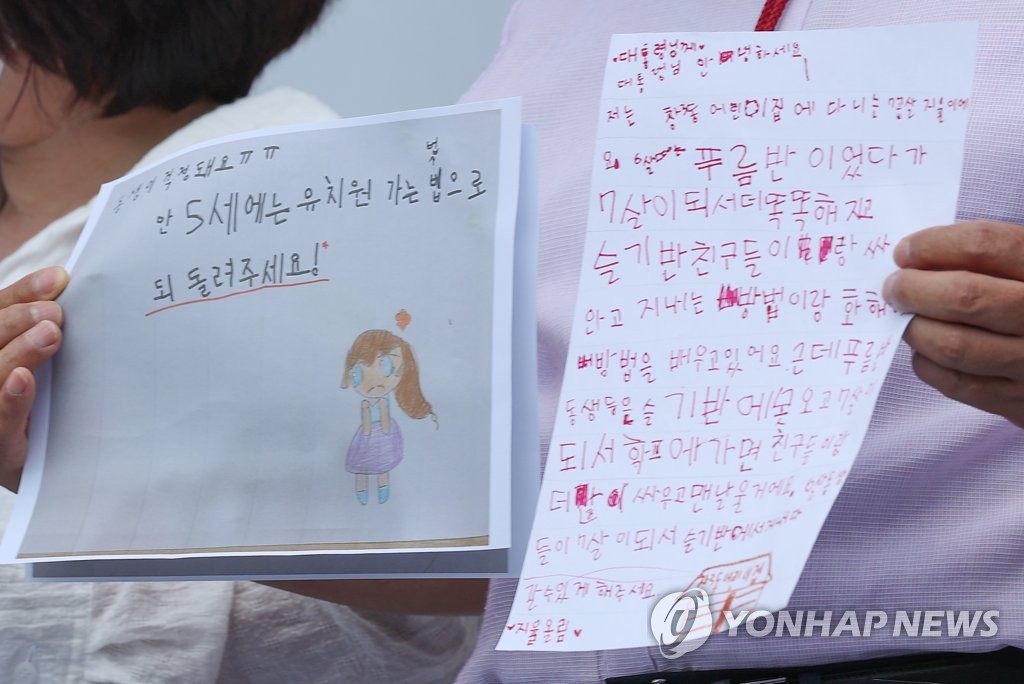 동생이 걱정돼요ㅠㅠ
법
안 5세에는 유치원 가는 법으로
되 돌려주세요!
♥대통령님께♥
대통령님 안녕하세요
저는 창동 어린이집에 다니는 7살 지율이에
요 6살때는 푸름반이었다가
7살이 되서 더똑똑해지고
슬기반친구들이랑 싸
안고 지내는 방법이랑 화해
방법을 배우고있어요. 근데 푸름
동생들은 슬기반에 못오고 7살
되서 학교에가면 친구들이랑
더 싸우고맨날 울거에요.
들이 7살이되서 슬기반에서
갈수있게 해주세요
♥지율올림♥
YONHAP NEWS